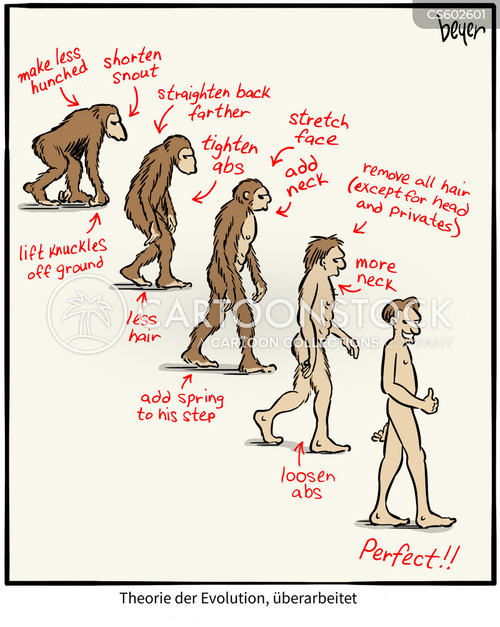 CS602601
beyer
make less
hunched
shorten
snout
straighten back
farther
stretch
face
tighten
abs
add
neck
remove all hair
(except for head
and privates)
lift knuckles
off ground
more
neck
less
hair
CARTOONSTOCK
CARTOON COLLECTIONS COMPANY
add spring
to his step
loosen
abs
Perfect!!
Theorie der Evolution, überarbeitet